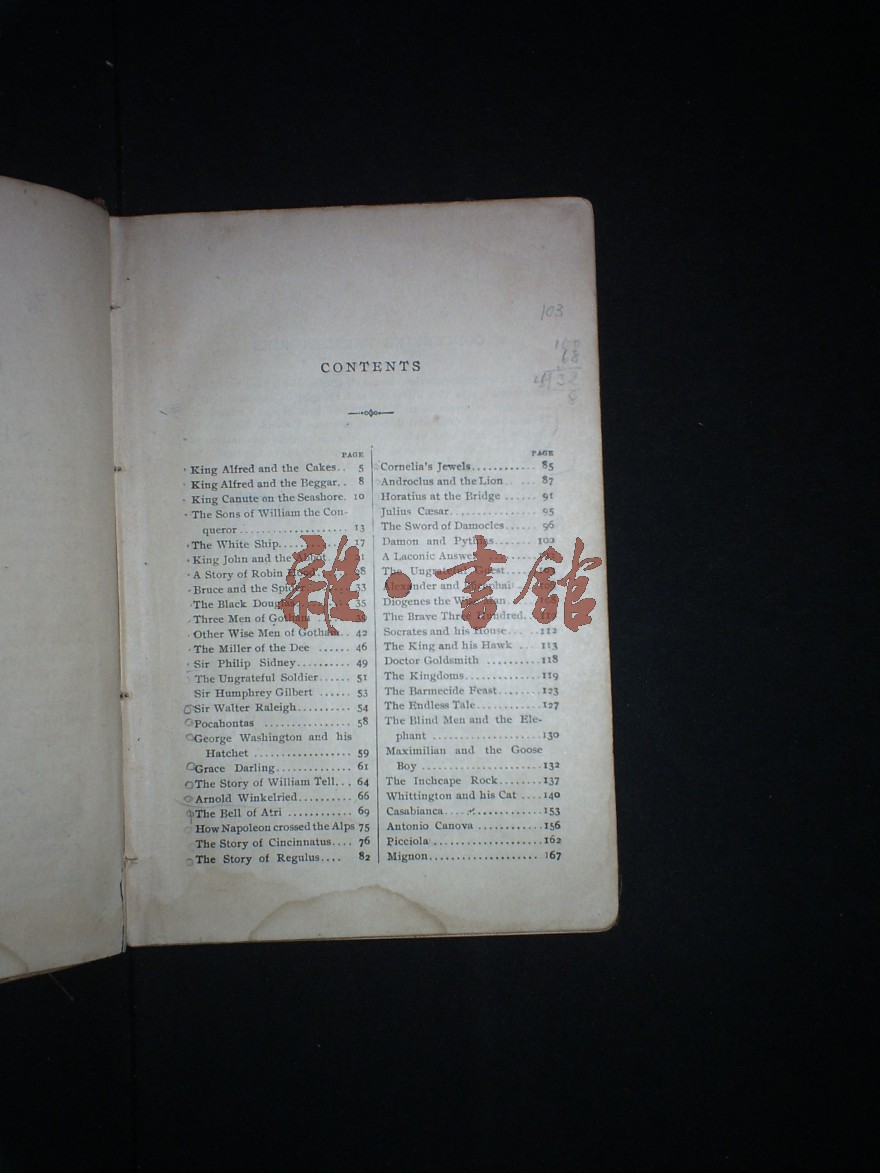 103
100
68
4)32
8
CONTENTS
PAGE
King Alfred and the Cakes.. 5
King Alfred and the Beggar.. 8
King Canute on the Seashore. 10
The Sons of William the Con-
queror .................. 13
The White Ship............ 17
King John and the Abbot.. 21
A Story of Robin Hood..... 28
Bruce and the Spider....... 33
The Black Douglas......... 35
Three Men of Gotham ..... 39
Other Wise Men of Gotham.. 42
The Miller of the Dee ...... 46
Sir Philip Sidney.......... 49
The Ungrateful Soldier...... 51
Sir Humphrey Gilbert ...... 53
Sir Walter Raleigh.......... 54
Pocahontas ................ 58
George Washington and his
Hatchet .................. 59
Grace Darling.............. 61
The Story of William Tell... 64
Arnold Winkelried.......... 66
The Bell of Atri ............ 69
How Napoleon crossed the Alps 75
The Story of Cincinnatus.... 76
The Story of Regulus.... 82
PAGE
Cornelia's Jewels............ 85
Androclus and the Lion .. ... 87
Horatius at the Bridge ...... 91
Julius Cæsar................ 95
The Sword of Damocles...... 96
Damon and Pythias........ 102
A Laconic Answer
The Ungrateful Guest
Alexander and
Diogenes the Wise Man
The Brave Three Hundred..
Socrates and his House... ..112
The King and his Hawk ...113
Doctor Goldsmith ..........118
The Kingdoms..............119
The Barmecide Feast........123
The Endless Tale...........127
The Blind Men and the Ele-
phant .....................130
Maximilian and the Goose
Boy .......................132
The Inchcape Rock........137
Whittington and his Cat ....140
Casabianca..................153
Antonio Canova ............156
Picciola.....................162
Mignon.....................167
雜·書館